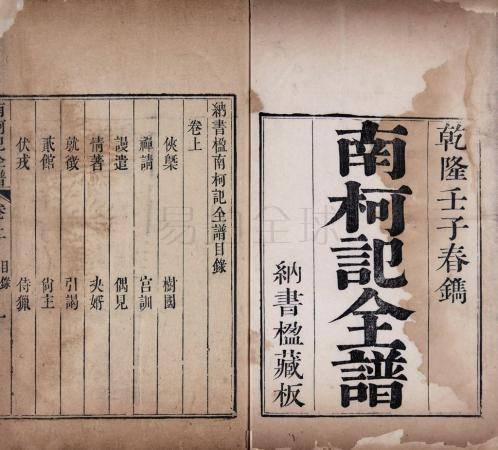 乾隆壬子春鐫
南柯記全譜
納書楹藏板
納書楹南柯記全譜目錄
卷上
俠槩 樹國
禪請 宮訓
謾遣 偶見
情著 決婿
就徵 引謁
貳館 尚主
伏戎 侍獵
南柯記全譜 卷上 目錄 一
易拍全球